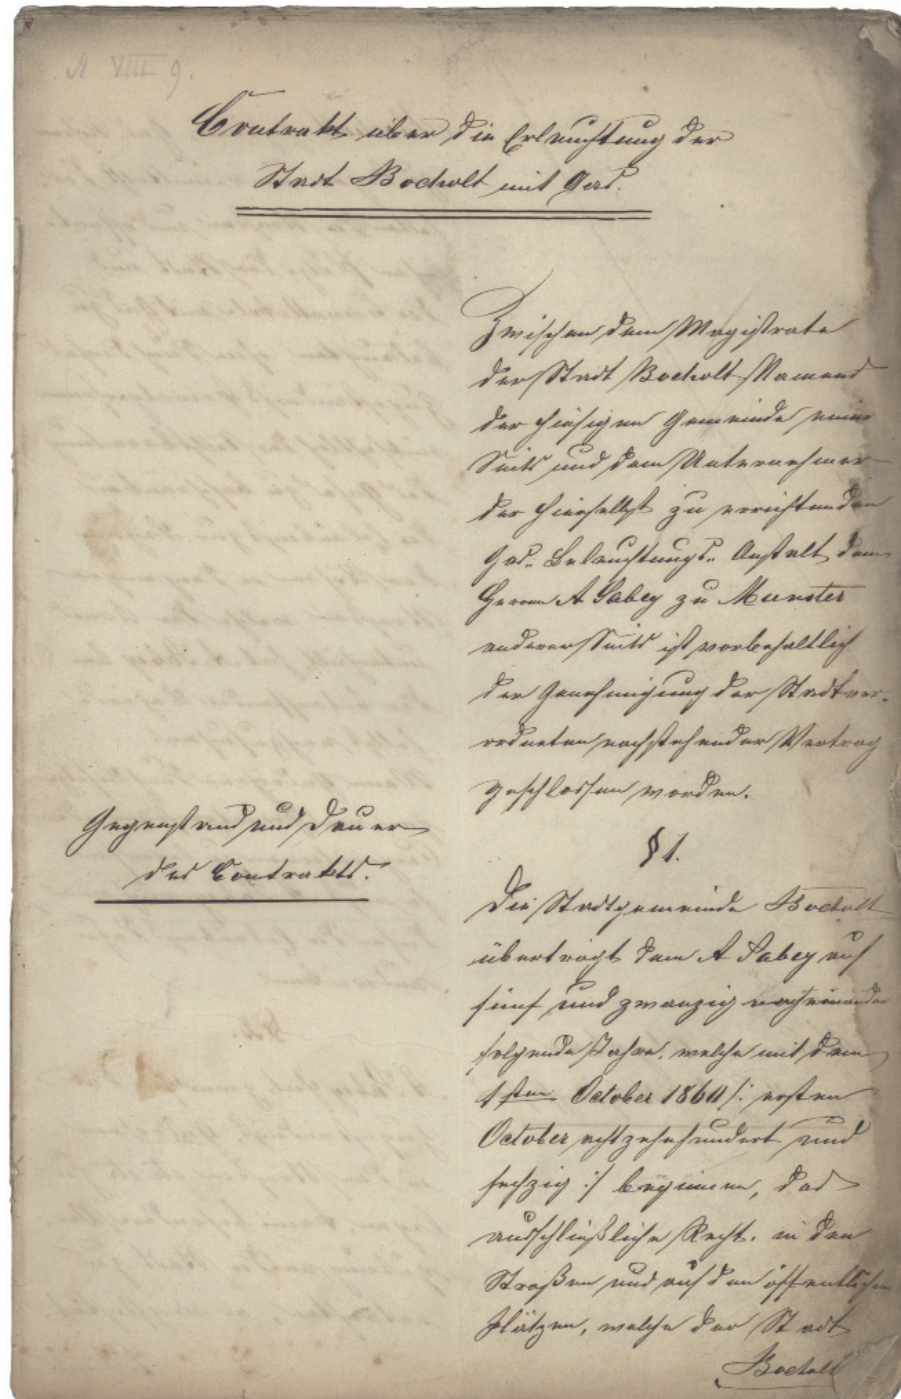 A VIII 9.
Contrakt über die Erleuchtung der
Stadt Bocholt mit Gas.
Zwischen dem Magistrate
der Stadt Bocholt Namens
der hiesigen Gemeinde einer
Seits und dem Unternehmer
der hierselbst zu errichtenden
Gas-Beleuchtungs-Anstalt dem
Herrn A Sabey zu Münster
anderer Seits ist vorbehaltlich
der Genehmigung der Stadtver-
ordneten nachstehender Vertrag
geschlossen worden.
Gegenstand und Dauer
des Contrakts.
§ 1.
Die Stadtgemeinde Bocholt
überträgt dem A Sabey auf
fünf und zwanzig nacheinander
folgende Jahre, welche mit dem
1sten October 1860 /: ersten
October achtzehnhundert und
sechzig :/ beginnen, das
ausschließliche Recht, in den
Straßen und auf den öffentlichen
Plätzen, welche der Stadt
Bocholt